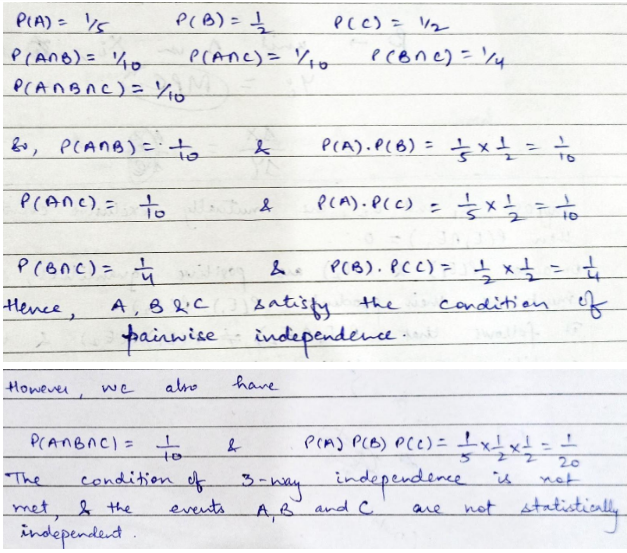 P(A) = 1/5 P(B) = 1/2 P(C) = 1/2
P(A∩B) = 1/10 P(A∩C) = 1/10 P(B∩C) = 1/4
P(A∩B∩C) = 1/10
So, P(A∩B) = 1/10 & P(A).P(B) = 1/5 × 1/2 = 1/10
P(A∩C) = 1/10 & P(A).P(C) = 1/5 × 1/2 = 1/10
P(B∩C) = 1/4 & P(B).P(C) = 1/2 × 1/2 = 1/4
Hence, A, B & C satisfy the condition of
pairwise independence.
However, we also have
P(A∩B∩C) = 1/10 & P(A) P(B) P(C) = 1/5 × 1/2 × 1/2 = 1/20
The condition of 3-way independence is not
met, & the events A, B and C are not statistically
independent.